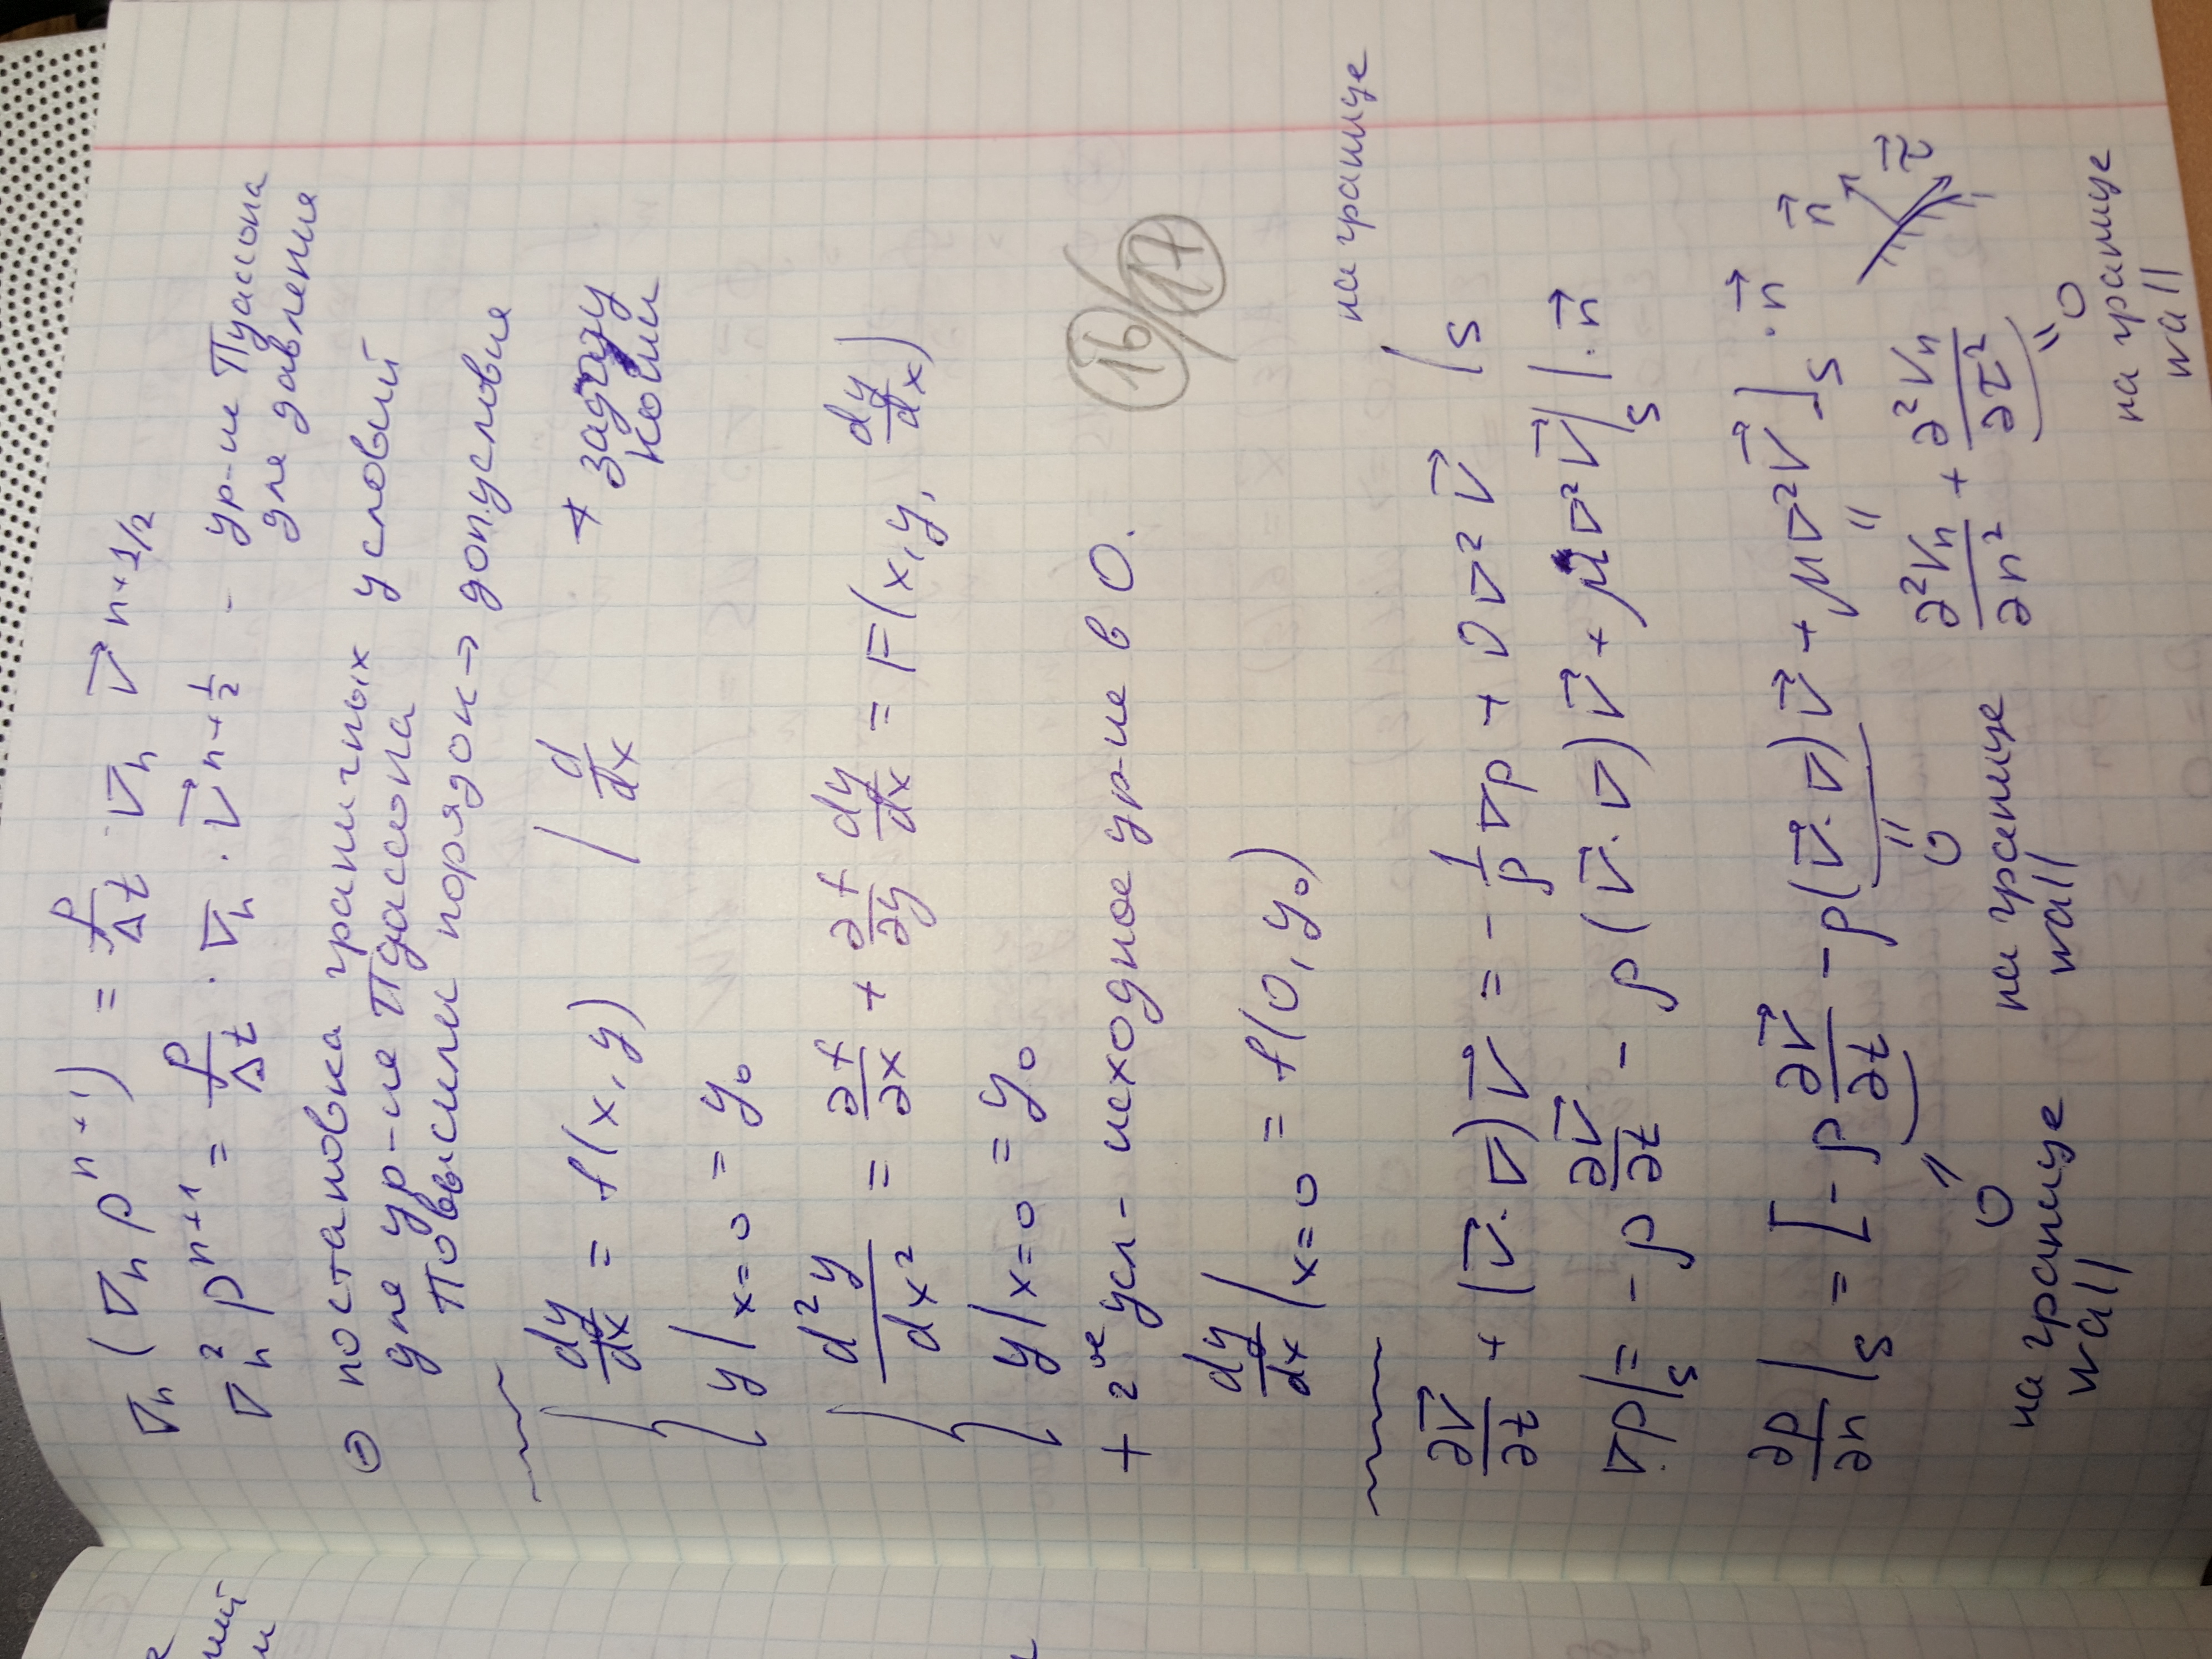 ∇ₕ(∇ₕ p^{n+1}) = ρ/Δt ∇ₕ V⃗^{n+1/2}
∇ₕ² p^{n+1} = ρ/Δt · ∇ₕ · V⃗^{n+1/2} - ур-ие Пуассона
для давления
⊖ постановка граничных условий
для ур-ие Пуассона
Повысили порядок → доп.условие
{ dy/dx = f(x, y) | d/dx + задачу
Коши
y|ₓ₌₀ = y₀
{ d²y/dx² = ∂f/∂x + ∂f/∂y dy/dx = F(x, y, dy/dx)
y|ₓ₌₀ = y₀
+ 2ое усл - исходное ур-ие в 0.
16/17
dy/dx|ₓ₌₀ = f(0, y₀)
на границе
∂V⃗/∂t + (V⃗·∇)V⃗ = -1/ρ ∇p + ν∇²V⃗ |_S
∇p|_S = -ρ ∂V⃗/∂t - ρ(V⃗·∇)V⃗ + μ∇²V⃗|_S |·n⃗
∂p/∂n|_S = [-ρ ∂V⃗/∂t - ρ(V⃗·∇)V⃗ + μ∇²V⃗]_S · n⃗
n⃗
τ⃗
" 0
" 0
" ∂²Vₙ/∂n² + ∂²Vₙ/∂τ²
" 0
на границе
wall
на границе
wall
на границе
wall